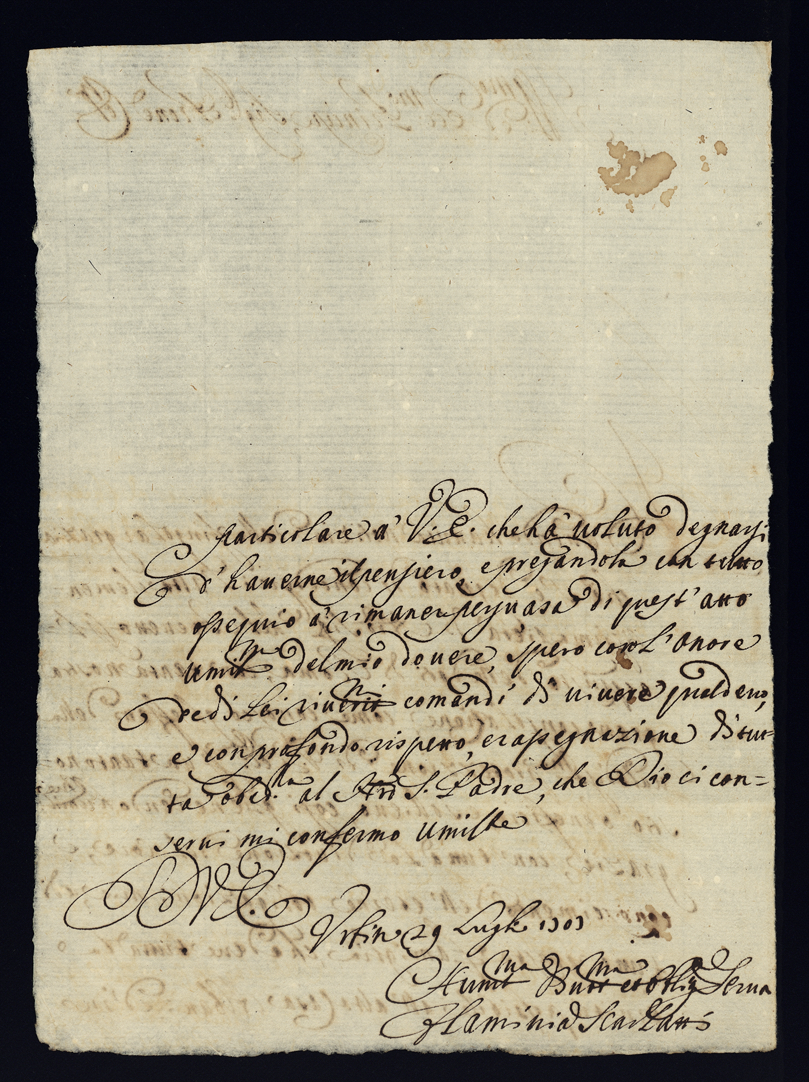 particolare a' V: E. che hà uoluto degnarsi
d'hauerne il pensiero, e pregandola con tutto
ossequio a' rimaner persuasa di quest'atto
umil.mo del mio douere, spero con l'onore
de di Lei riuer.mi comandi di uiuere qual deuo,
e con profondo rispetto, e rasegnazione di tut-
ta obed.za al S. Padre, che Dio ci con=
serui mi confermo umilte
D V. E.
Vrbin 29 Lugli 1703
Humil.ma Diuot.ma et Oblig.ma Serua
Flaminia Scarlatti